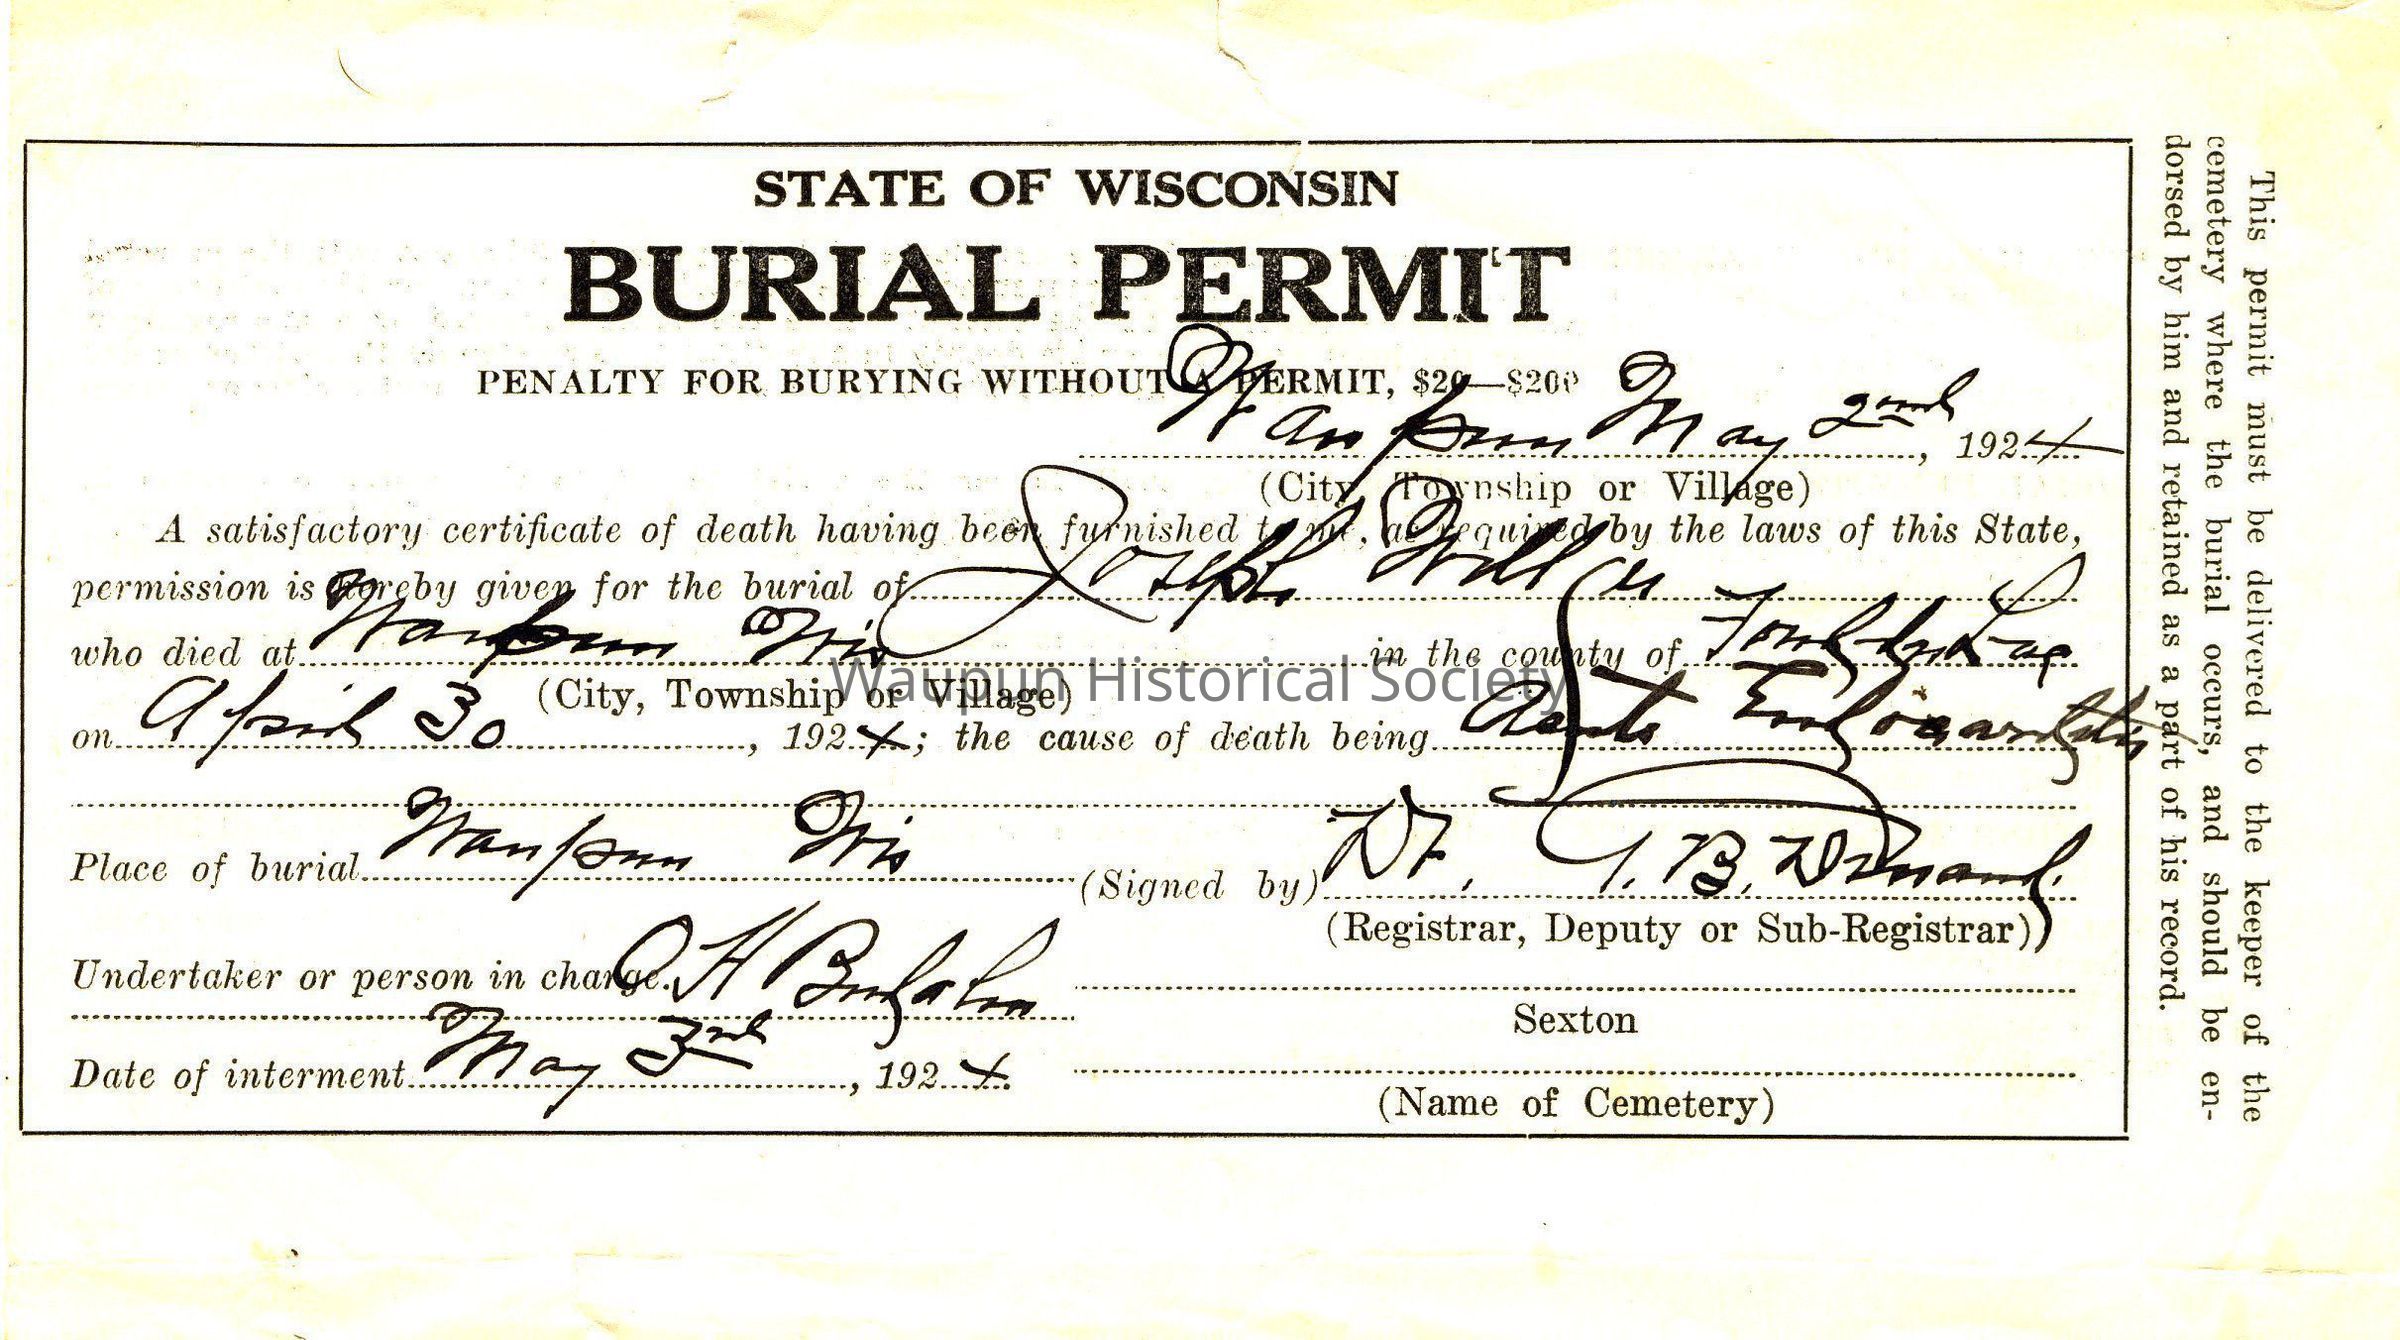 STATE OF WISCONSIN
BURIAL PERMIT
PENALTY FOR BURYING WITHOUT A PERMIT, $20—$200
Waupun May 2nd, 1924
(City, Township or Village)
A satisfactory certificate of death having been furnished to me, as required by the laws of this State,
permission is hereby given for the burial of Joseph
who died at Waupun Wis in the county of Fond du Lac
(City, Township or Village)
on April 30, 1924; the cause of death being Acute Endocarditis
Place of burial Waupun Wis
(Signed by) Dr.
(Registrar, Deputy or Sub-Registrar)
Undertaker or person in charge O H
Sexton
Date of interment May 3rd, 1924.
(Name of Cemetery)
This permit must be delivered to the keeper of the
cemetery where the burial occurs, and should be en-
dorsed by him and retained as a part of his record.
Waupun Historical Society